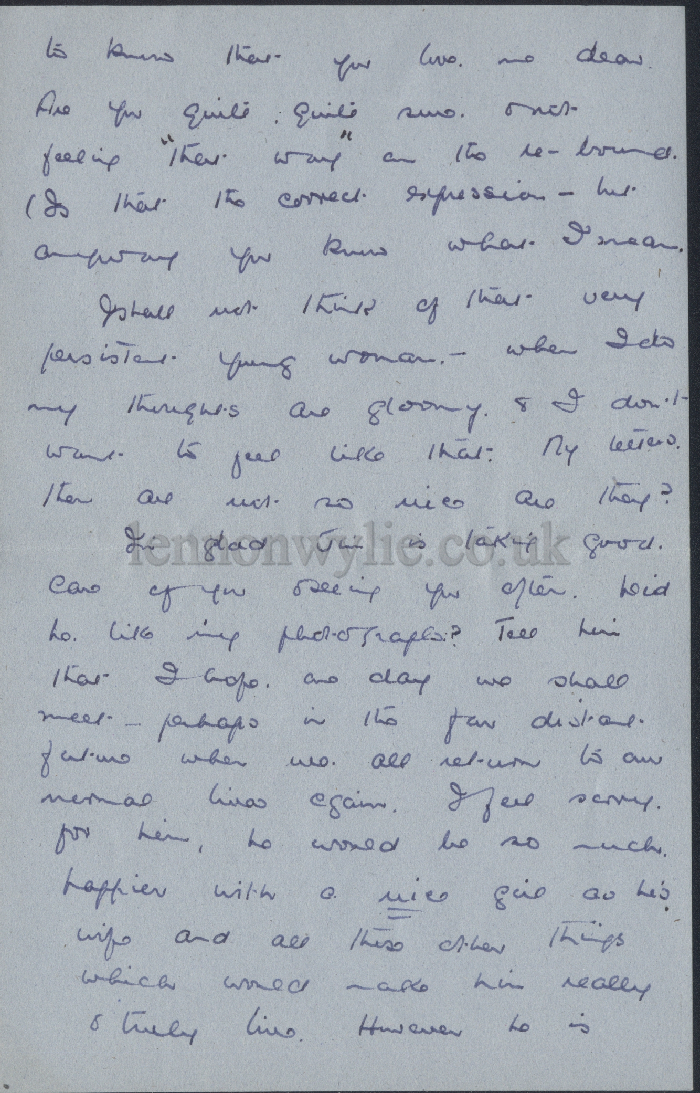 to know that you love me dear.
Are you quite, quite sure & not
feeling "that way" on the re-bound.
(Is that the correct expression - but
anyway you know what I mean.
I shall not think of that very
persistent young woman. - when I do
my thoughts are gloomy. & I don't
want to feel like that. My letters.
then are not so nice are they?
I'm glad Jim is taking good.
lennonwylie.co.uk
care of you & seeing you often. Did
he. like my photographs? Tell him
that I hope. one day we shall
meet - perhaps in the far distant
future when we. all return to our
normal lives again. I feel sorry.
for him, he would be so much.
happier with a nice girl as his
wife and all those other things
which would make him really
& truly live. However he is